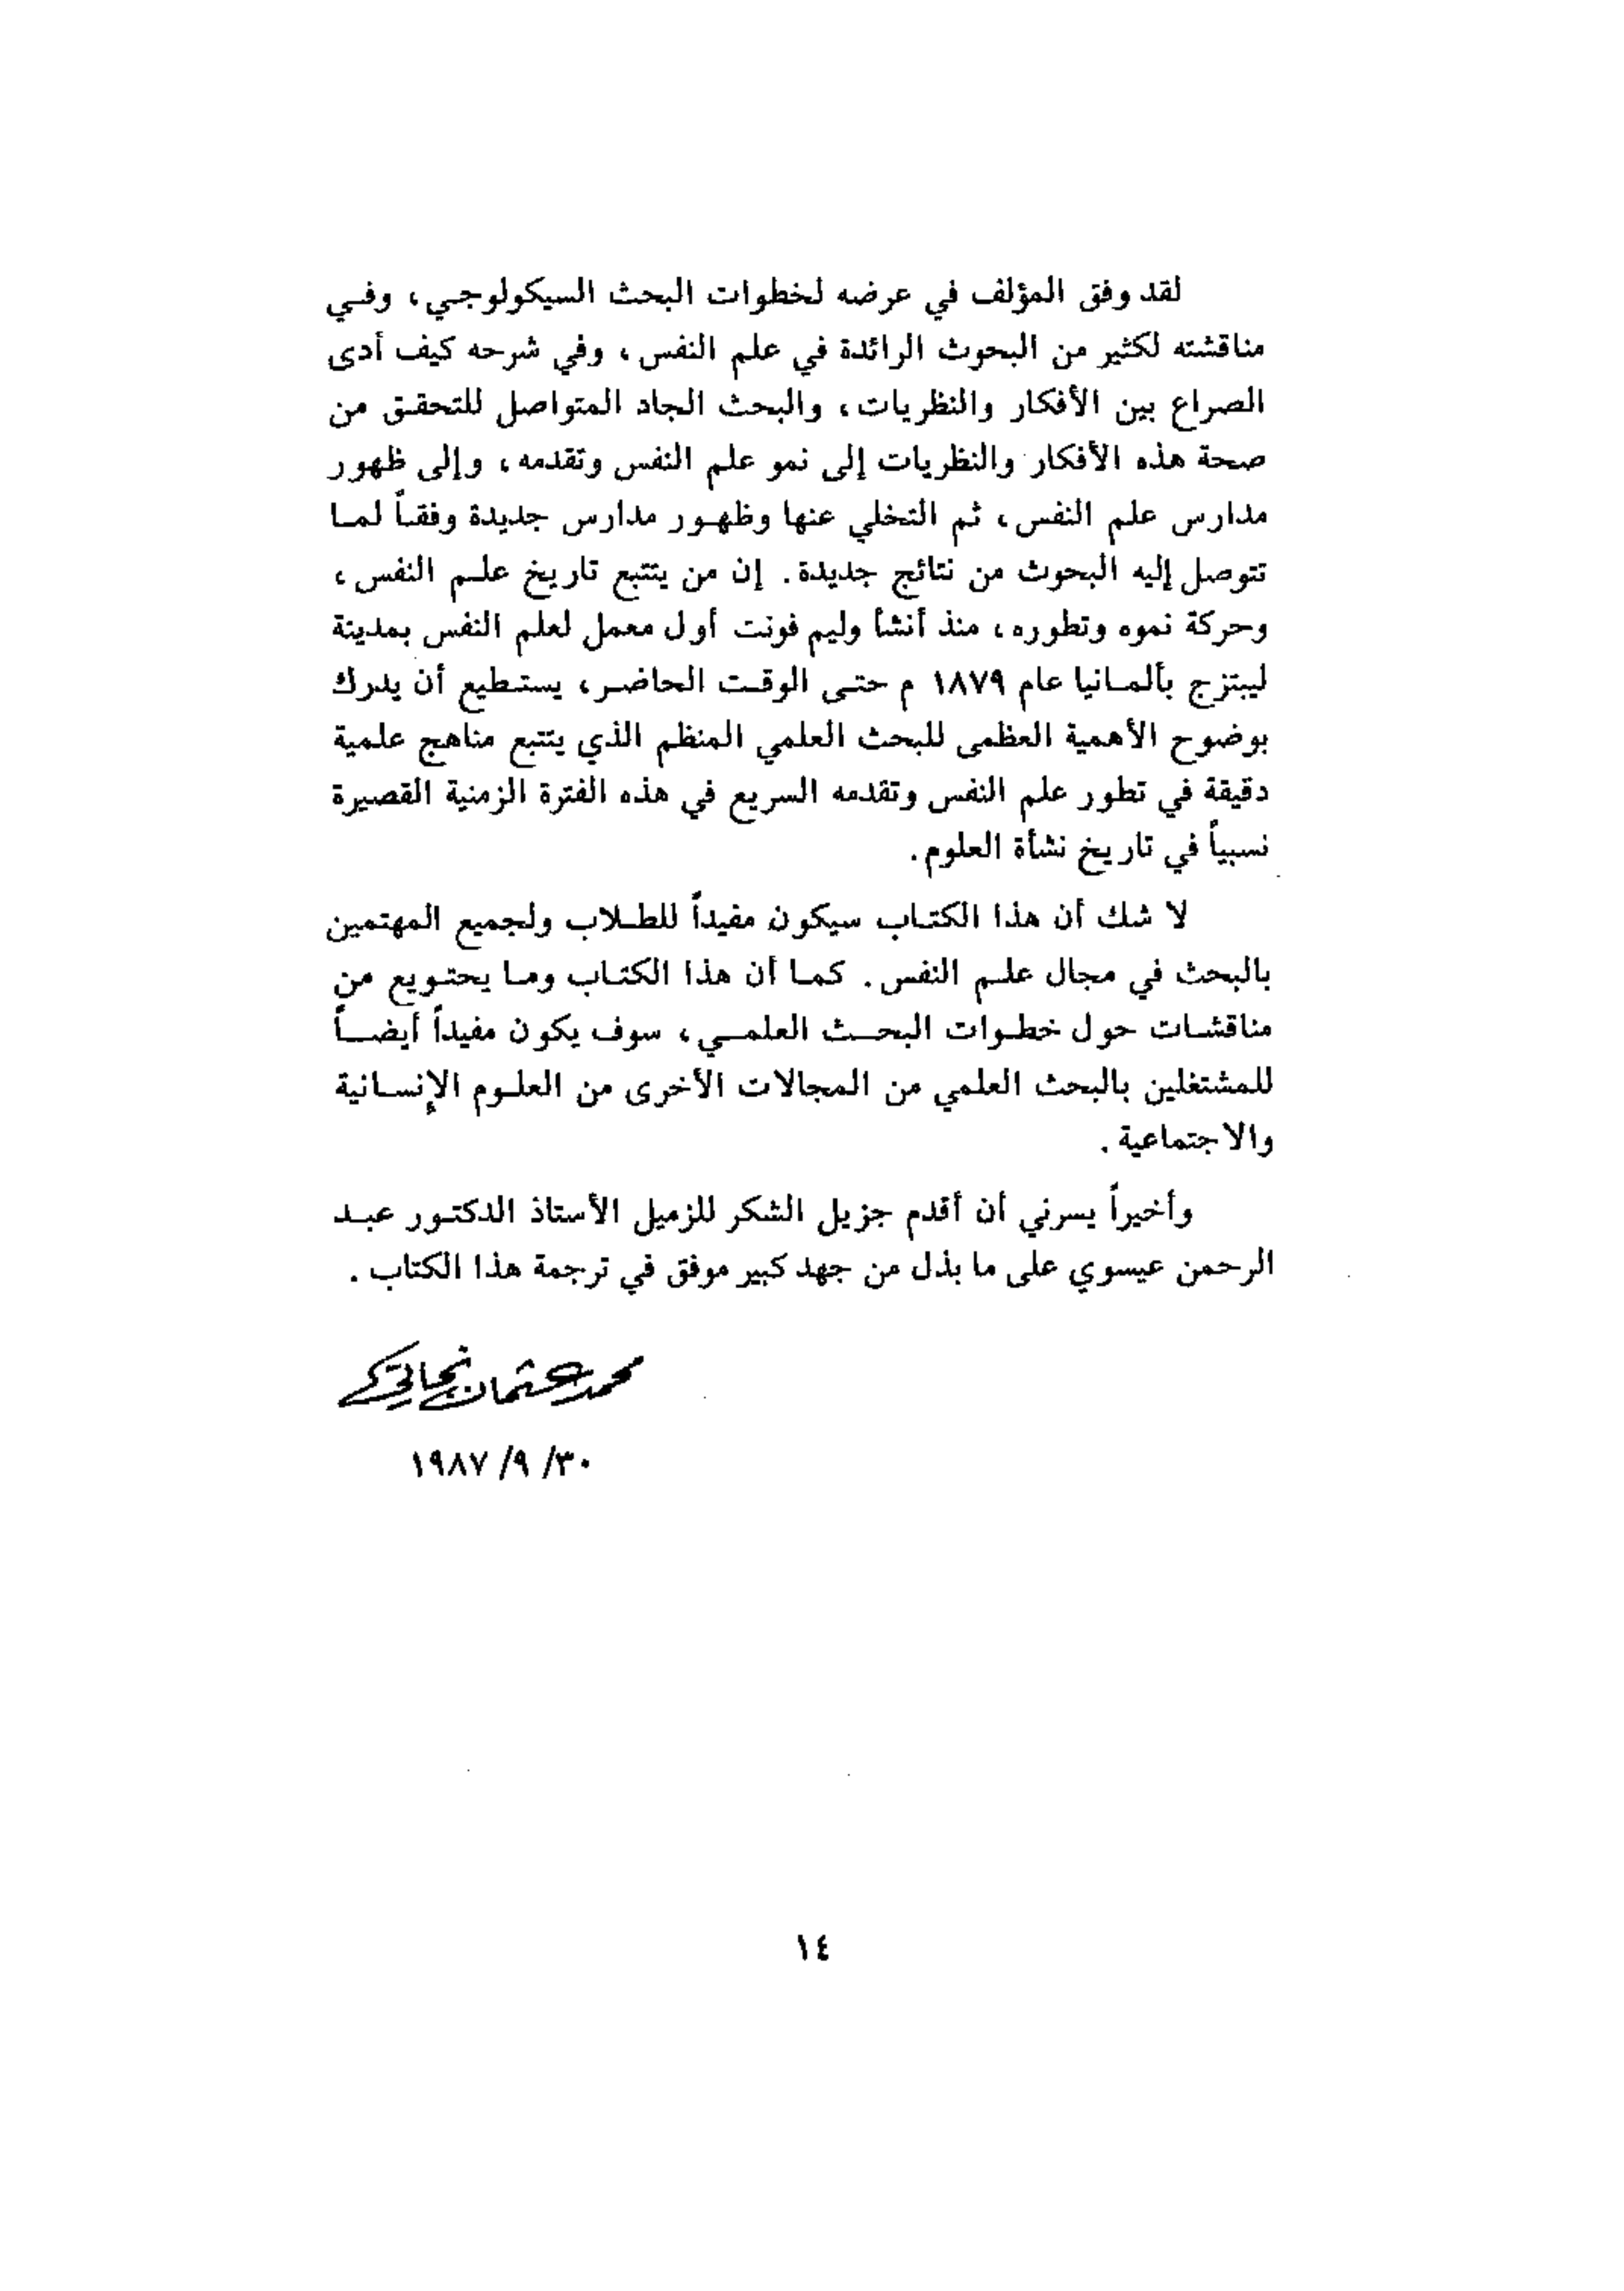 لقد وفق المؤلف في عرضه لخطوات البحث السيكولوجي، وفي
مناقشته لكثير من البحوث الرائدة في علم النفس، وفي شرحه كيف أدى
الصراع بين الأفكار والنظريات، والبحث الجاد المتواصل للتحقق من
صحة هذه الأفكار والنظريات إلى نمو علم النفس وتقدمه، وإلى ظهور
مدارس علم النفس، ثم التخلي عنها وظهور مدارس جديدة وفقاً لما
تتوصل إليه البحوث من نتائج جديدة. إن من يتتبع تاريخ علم النفس،
وحركة نموه وتطوره، منذ أنشأ وليم فونت أول معمل لعلم النفس بمدينة
ليبتزج بألمانيا عام ١٨٧٩ م حتى الوقت الحاضر، يستطيع أن يدرك
بوضوح الأهمية العظمى للبحث العلمي المنظم الذي يتتبع مناهج علمية
دقيقة في تطور علم النفس وتقدمه السريع في هذه الفترة الزمنية القصيرة
نسبياً في تاريخ نشأة العلوم.
لا شك أن هذا الكتاب سيكون مفيداً للطلاب ولجميع المهتمين
بالبحث في مجال علم النفس. كما أن هذا الكتاب وما يحتويع من
مناقشات حول خطوات البحث العلمي، سوف يكون مفيداً أيضاً
للمشتغلين بالبحث العلمي من المجالات الأخرى من العلوم الإنسانية
والاجتماعية.
وأخيراً يسرني أن أقدم جزيل الشكر للزميل الأستاذ الدكتور عبد
الرحمن عيسوي على ما بذل من جهد كبير موفق في ترجمة هذا الكتاب.
محمد عثمان نجاتي
٣٠/ ٩/ ١٩٨٧
١٤